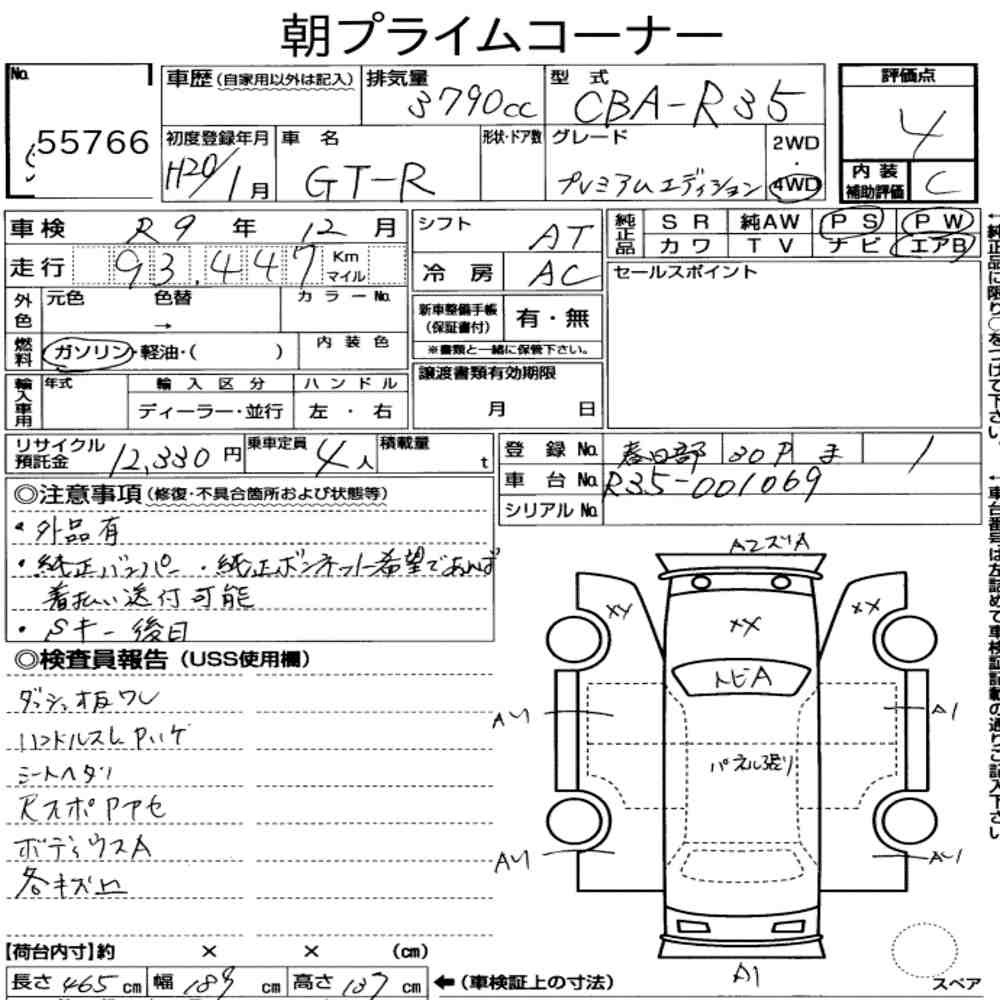 朝プライムコーナー
No. 55766
車歴(自家用以外は記入)
排気量 3790cc
型式 CBA-R35
評価点 4
初度登録年月 H20/1月
車名 GT-R
形状・ドア数
グレード プレミアムエディション
2WD・4WD
内装補助評価 C
車検 R9年 12月
走行 93,447 Km マイル
外色 元色 色替 → カラーNo.
燃料 ガソリン・軽油・( ) 内装色
輸入車用 年式 輸入区分 ディーラー・並行 ハンドル 左・右
シフト AT
冷房 AC
新車整備手帳(保証書付) 有・無
※書類と一緒に保管下さい。
譲渡書類有効期限 月 日
純正品 SR 純AW PS PW
カワ TV ナビ エアB
セールスポイント
←純正品に限り○をつけて下さい
リサイクル預託金 12,330円
乗車定員 4人
積載量 t
登録No. 春日部 30P ま 1
車台No. R35-001069
シリアルNo.
←車台番号は左詰めで車検証記載の通りご記入下さい
◎注意事項(修復・不具合箇所および状態等)
・外品有
・純正バンパー・純正ボンネット希望であれば
着払い送付可能
・Sキー後日
◎検査員報告(USS使用欄)
ダッシュ板ワレ
ハンドルスレ Pハゲ
シートヘタリ
Rスポ Pアセ
ボディウスA
各キズ凹
A2ズリA
XX
XX
XX
トビA
A1
A1
パネル張り
A1
A1
A1
スペア
【荷台内寸】約 × × (cm)
長さ 465cm 幅 189cm 高さ 137cm
←(車検証上の寸法)